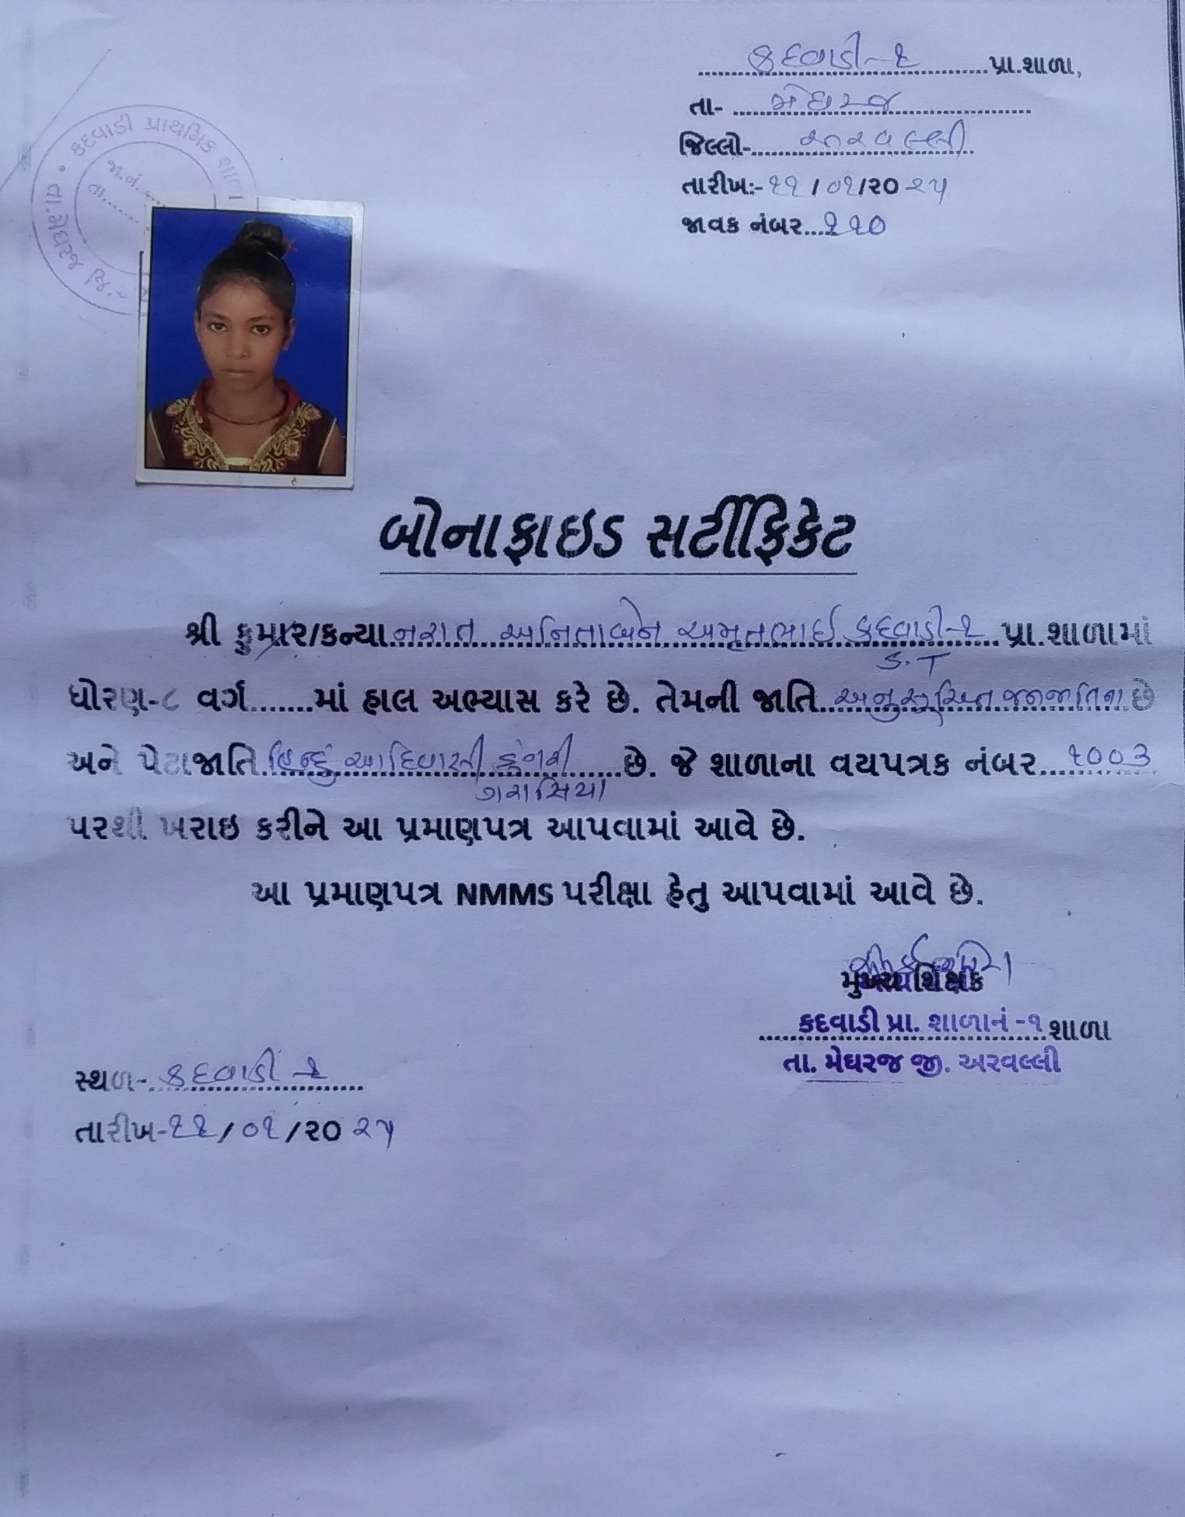 કદવાડી-૧ પ્રા.શાળા,
તા- મેઘરજ
જિલ્લો- અરવલ્લી
તારીખ:- ૧૧/૦૧/૨૦૨૫
જાવક નંબર...૧૧૦
કદવાડી પ્રાથમિક શાળા
જા.નં.
તા.
તા.મેઘરજ જી.
બોનાફાઇડ સર્ટીફિકેટ
શ્રી કુમાર/કન્યા અનિતાબેન અમૃતભાઈ કદવાડી-૧ પ્રા.શાળામાં
S.T
ધોરણ-૮ વર્ગ.......માં હાલ અભ્યાસ કરે છે. તેમની જાતિ અનુસૂચિત જનજાતિના છે
અને પેટાજાતિ હિન્દુ આદિવાસી ડુંગરી છે. જે શાળાના વયપત્રક નંબર ૧૦૦૩
ગરાસિયા
પરથી ખરાઇ કરીને આ પ્રમાણપત્ર આપવામાં આવે છે.
આ પ્રમાણપત્ર NMMS પરીક્ષા હેતુ આપવામાં આવે છે.
મુખ્ય શિક્ષક
કદવાડી પ્રા. શાળાનં -૧ શાળા
તા. મેઘરજ જી. અરવલ્લી
સ્થળ- કદવાડી ૧
તારીખ-૧૧/૦૧/૨૦૨૫